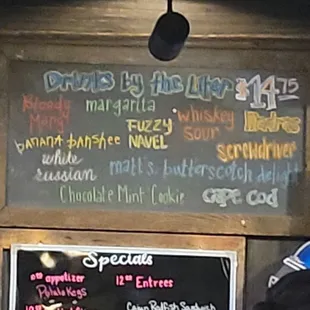 Drinks by the Liter $14.75
Bloody Mary
margarita
FUZZY NAVEL
whiskey sour
Madras
banana banshee
screwdriver
white russian
matt's butterscotch delight
Chocolate Mint Cookie
cape cod
Specials
appetizer
Potato Kegs
12⁰⁰ Entrees
Cajun Redfish Sandwich